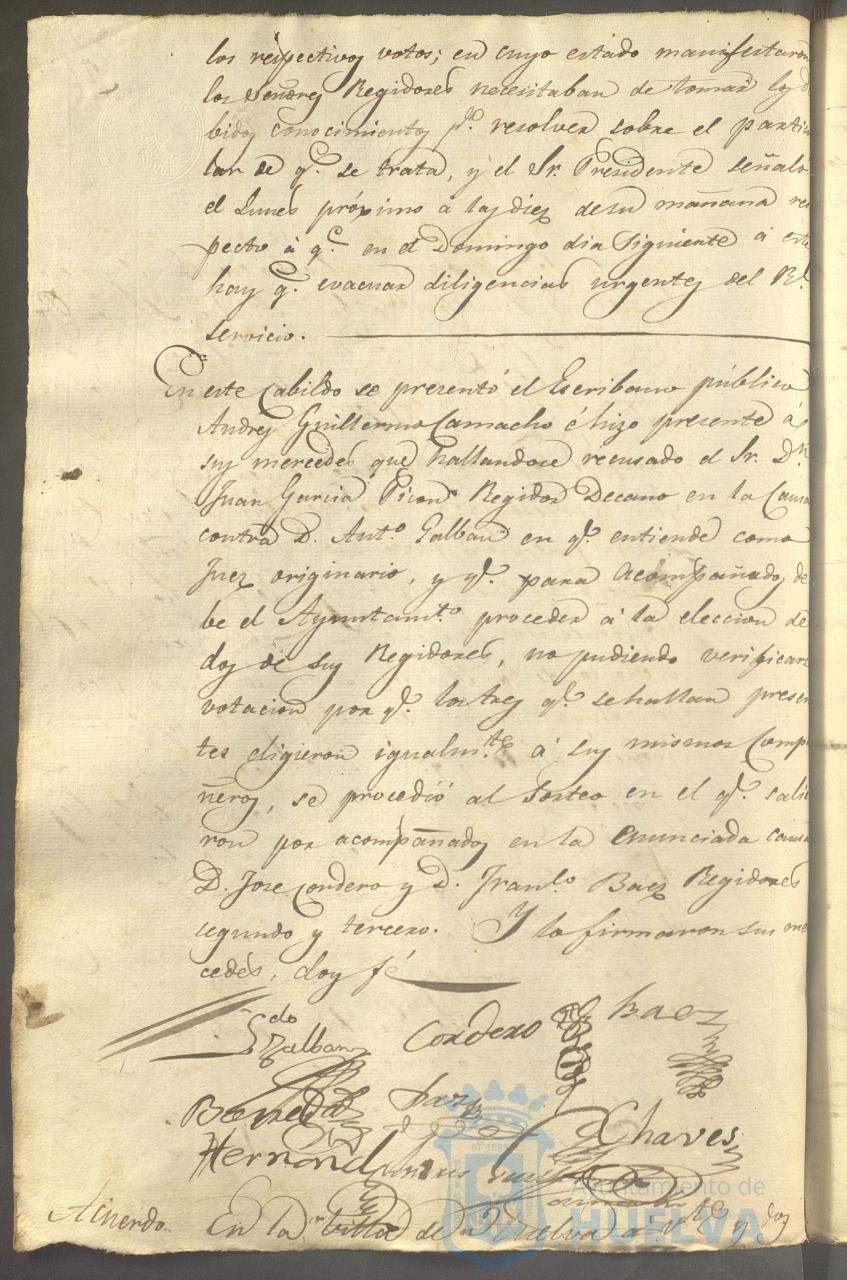 los respectivos votos; en cuyo estado manifestaron
los Señores Regidores necesitaban de tomar los d
bidos conocimientos pa. resolver sobre el particu
lar de qe. se trata, y el Sr. Presidente señaló
el Lunes próximo a las diez de su mañana res
pecto á qe. en el Domingo dia siguiente á este
hay qe. evacuar diligencias urgentes del Rl.
servicio.
En este Cabildo se presentó el Escribano público
Andres Guillermo Camacho é hizo presente á
sus mercedes que hallandose recusado el Sr. Dn.
Juan Garcia Picon Regidor Decano en la Causa
contra D. Anto. Galban en qe. entiende como
Juez originario, y qe. para Acompañados de
be el Ayuntamto. proceder á la eleccion de
dos de sus Regidores, no pudiendo verificars
votacion por qe. los tres qe. se hallan presen
tes eligieron igualmte. á sus mismos Compa
ñeros, se procedió al Sorteo en el qe. salie
ron por acompañados en la enunciada causa
D. Jose Cordero y D. Franco. Baez Regidores
segundo y tercero. Y lo firmaron sus mer
cedes, doy fé
Galban Cordero Baez
Chaves
Hernand
Acuerdo. En la villa de Huelva a vte. y dos
Ayuntamiento de
HUELVA